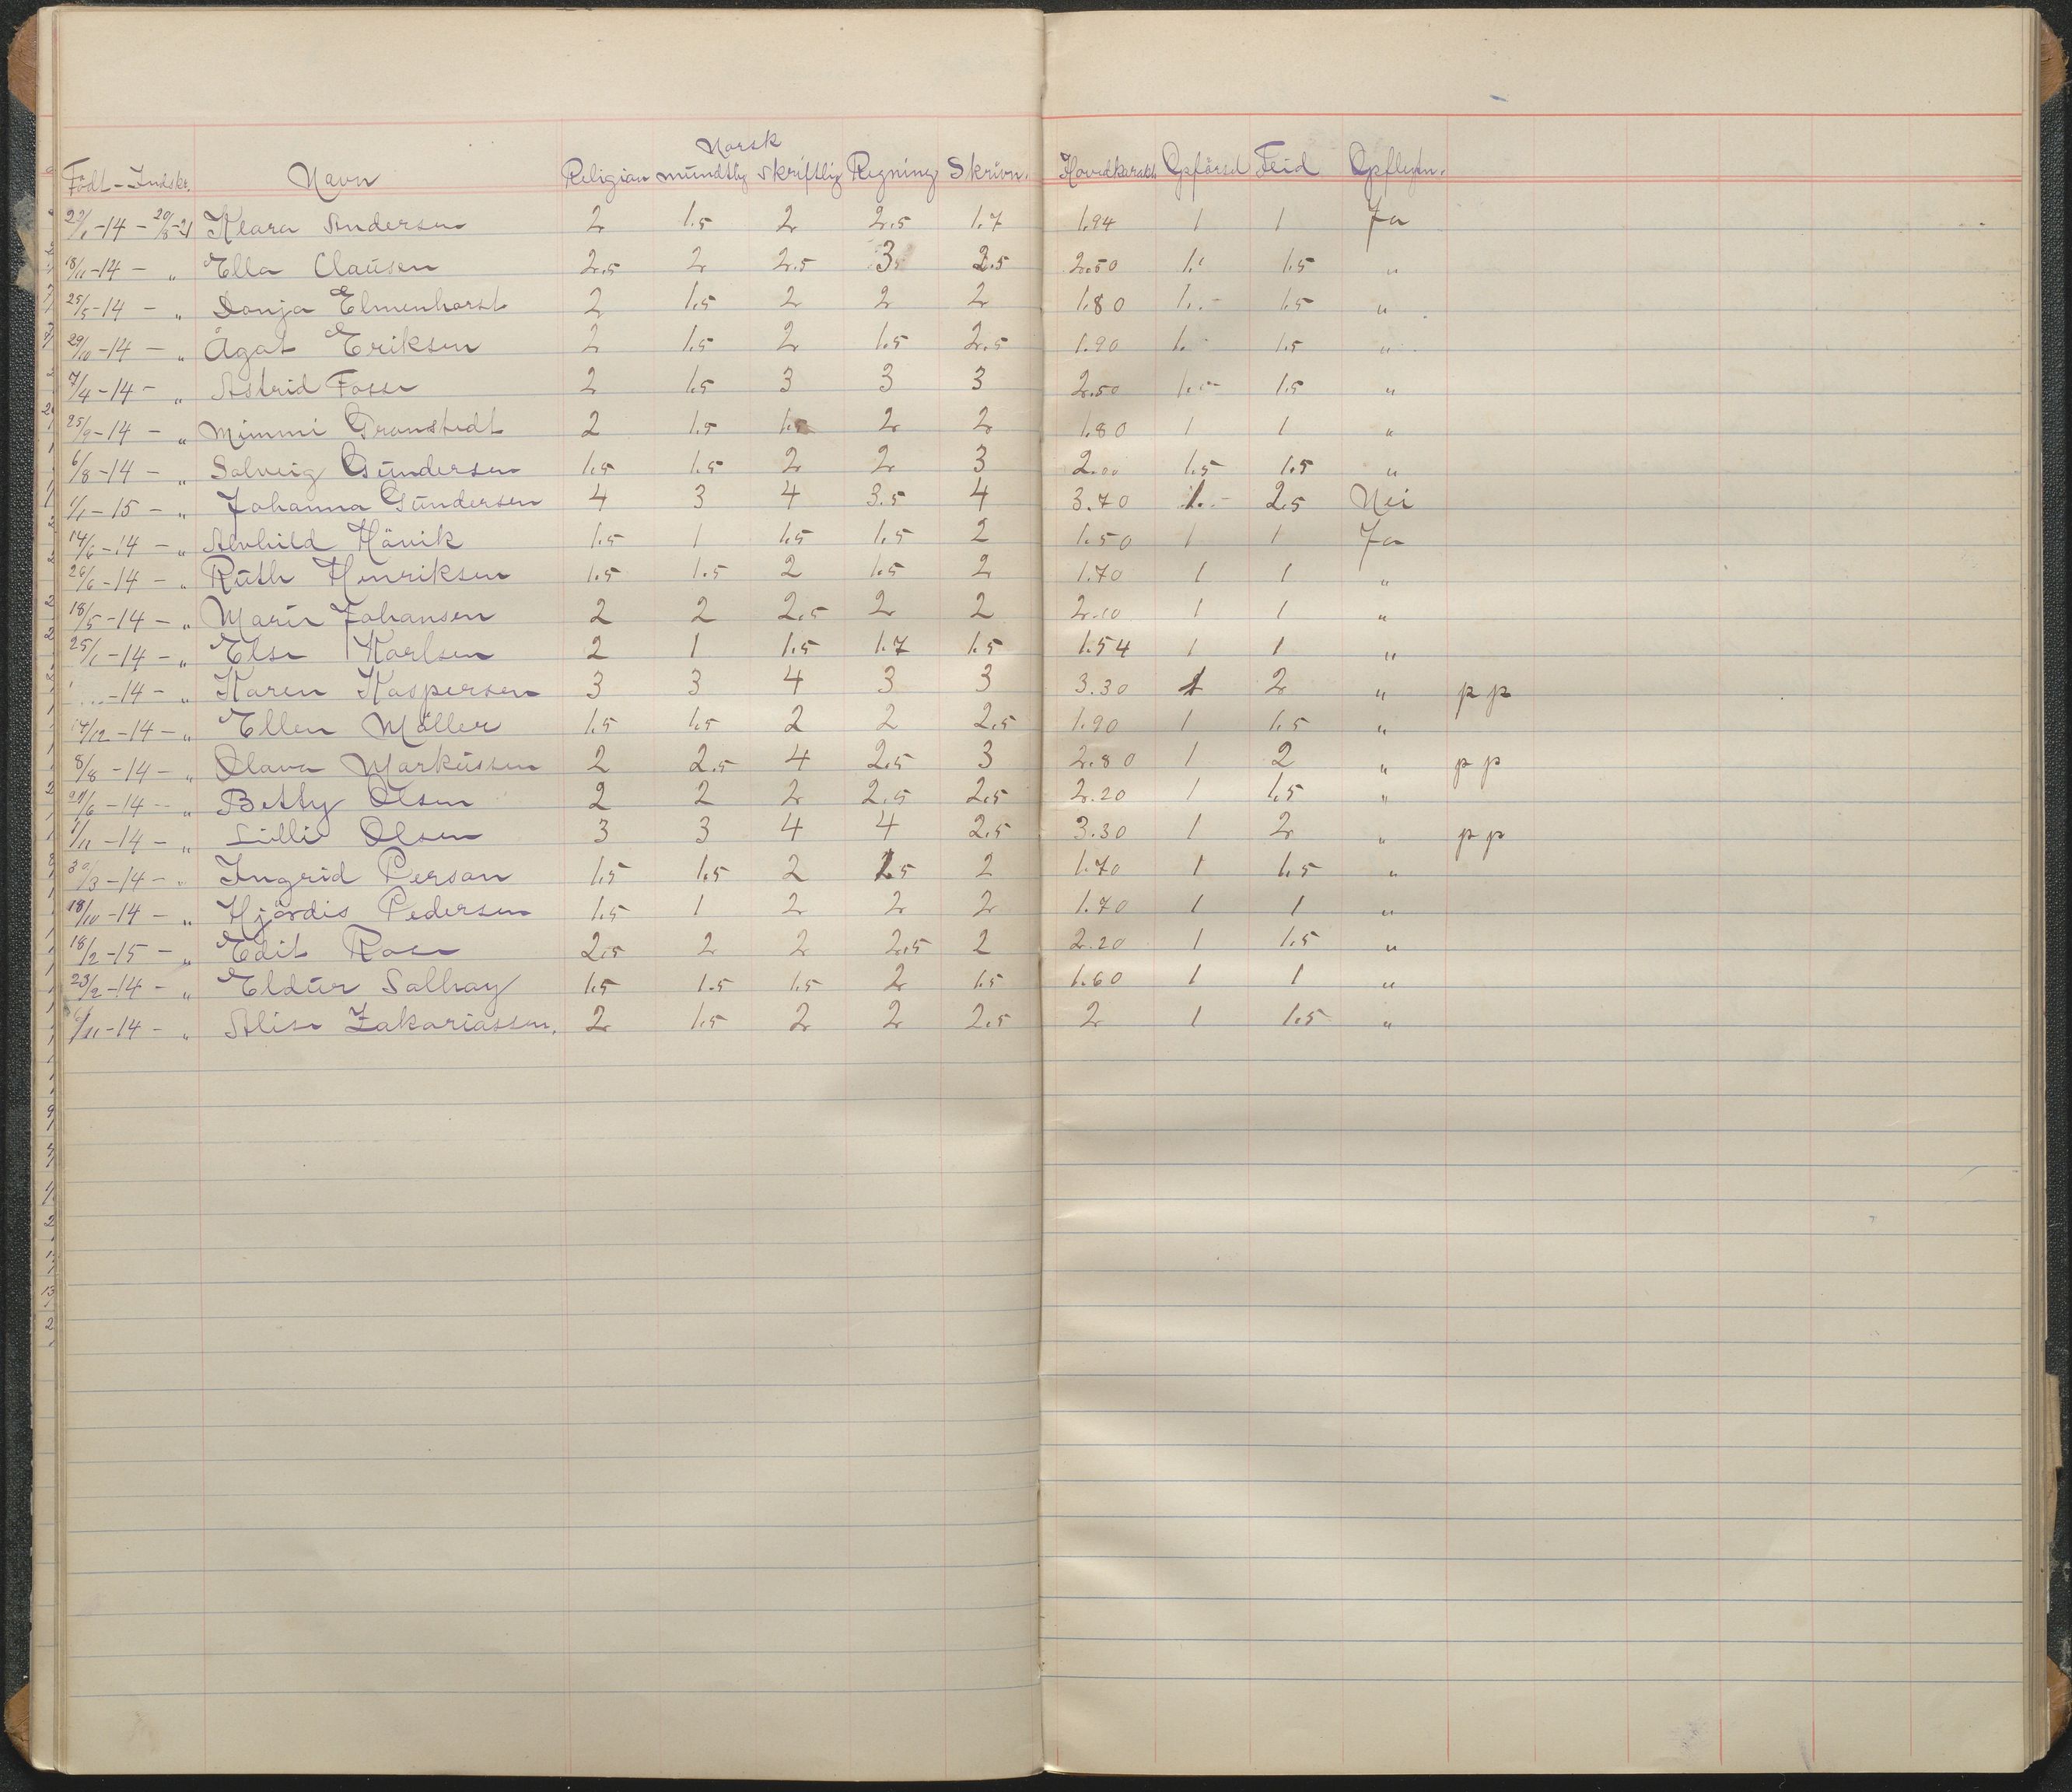 Norsk
Födt - Indskr. Navn Religion mundtlig skriftlig Regning Skrivn. Hovedkarakt. Opförsel Flid Opflytn.
29/1-14 - 20/8-21 Klara Andersen 2 1.5 2 2.5 1.7 1.94 1 1 Ja
18/11-14 - " Ella Clausen 2.5 2 2.5 3 2.5 2.50 1. 1.5 "
25/5-14 - " Sonja Elmenhorst 2 1.5 2 2 2 1.80 1. 1.5 "
29/10-14 - " Ågot Eriksen 2 1.5 2 1.5 2.5 1.90 1. 1.5 "
7/4-14 - " Astrid Fosse 2 1.5 3 3 3 2.50 1. 1.5 "
25/9-14 - " Mimmi Gronstedt 2 1.5 1.5 2 2 1.80 1 1 "
6/8-14 - " Solveig Gundersen 1.5 1.5 2 2 3 2.00 1.5 1.5 "
1/1-15 - " Johanna Gundersen 4 3 4 3.5 4 3.70 1. 2.5 Nei
14/6-14 - " Alvhild Hövik 1.5 1 1.5 1.5 2 1.50 1 1 Ja
26/6-14 - " Ruth Henriksen 1.5 1.5 2 1.5 2 1.70 1 1 "
18/5-14 - " Marie Johansen 2 2 2.5 2 2 2.10 1 1 "
25/1-14 - " Else Karlsen 2 1 1.5 1.7 1.5 1.54 1 1 "
-14 - " Karen Kaspersen 3 3 4 3 3 3.30 1 2 " pp
14/12-14 - " Ellen Möller 1.5 1.5 2 2 2.5 1.90 1 1.5 "
8/8-14 - " Olava Markussen 2 2.5 4 2.5 3 2.80 1 2 " pp
/6-14 - " Betty Olsen 2 2 2 2.5 2.5 2.20 1 1.5 "
/11-14 - " Lilli Olsen 3 3 4 4 2.5 3.30 1 2 " pp
30/3-14 - " Ingrid Person 1.5 1.5 2 1.5 2 1.70 1 1.5 "
18/10-14 - " Hjördis Pedersen 1.5 1 2 2 2 1.70 1 1 "
18/2-15 - " Edit Rose 2.5 2 2 2.5 2 2.20 1 1.5 "
23/2-14 - " Eldur Solhøy 1.5 1.5 1.5 2 1.5 1.60 1 1 "
/11-14 - " Alise Zakariassen. 2 1.5 2 2 2.5 2 1 1.5 "